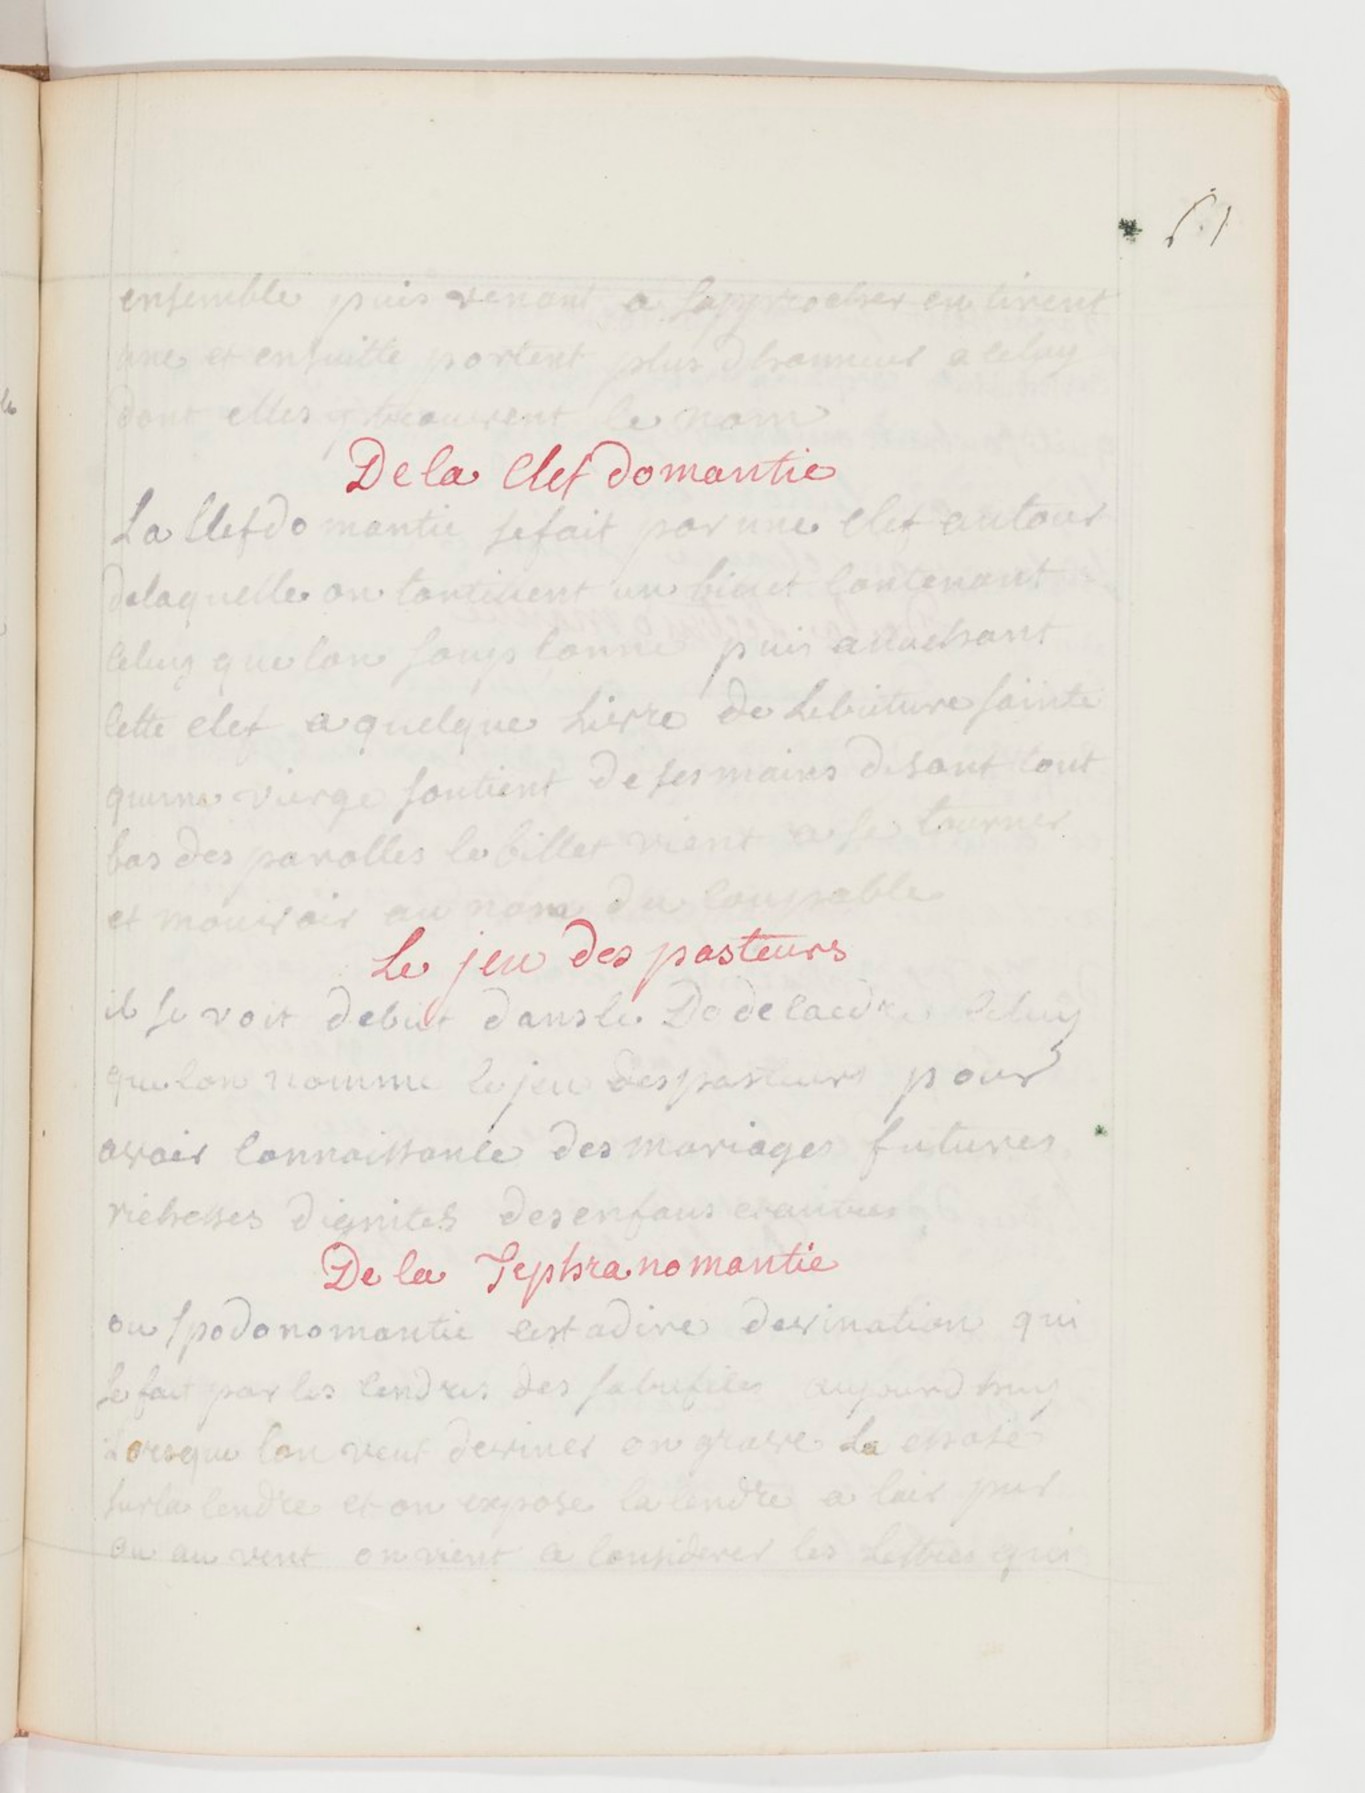 61
ensemble puis venant a sapprocher en tirent
une et ensuitte portent plus dhonneur a celuy
dont elles y treuvrent le nom
De la Clef domantie
La Clefdo mantie se fait par une clef autour
delaquelle on tortillent un billet Contenant
Celuy que lon soupconne puis attachant
Cette clef a quelque Livre de Lecriture sainte
quune vierge soutient de ses mains disant tout
bas des parolles le billet vient a se tourner
et mouvoir au nom du Coupable
Le jeu des pasteurs
il se voit decrit dansle Dodecaedre celuy
que lon nomme le jeu des pasteurs pour
avoir Connoissance des mariages futures
richesses dignites desenfans et autres
De la Tephranomantie
ou spodonomantie cest adire devination qui
se fait par les Cendres des sacrifices aujourdhuy
Lorsque lon veut deviner on grave La chose
surla Cendre et on expose la Cendre a lair pur
ou au vent on vient a Considerer les Lettres qui